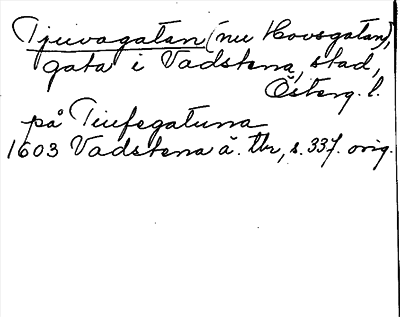 Tjuvagatan (nu Hovsgatan),
gata i Vadstena, stad,
Österg. l.
på Tiufegatunna
1603 Vadstena ä. tbr, s. 337. orig.